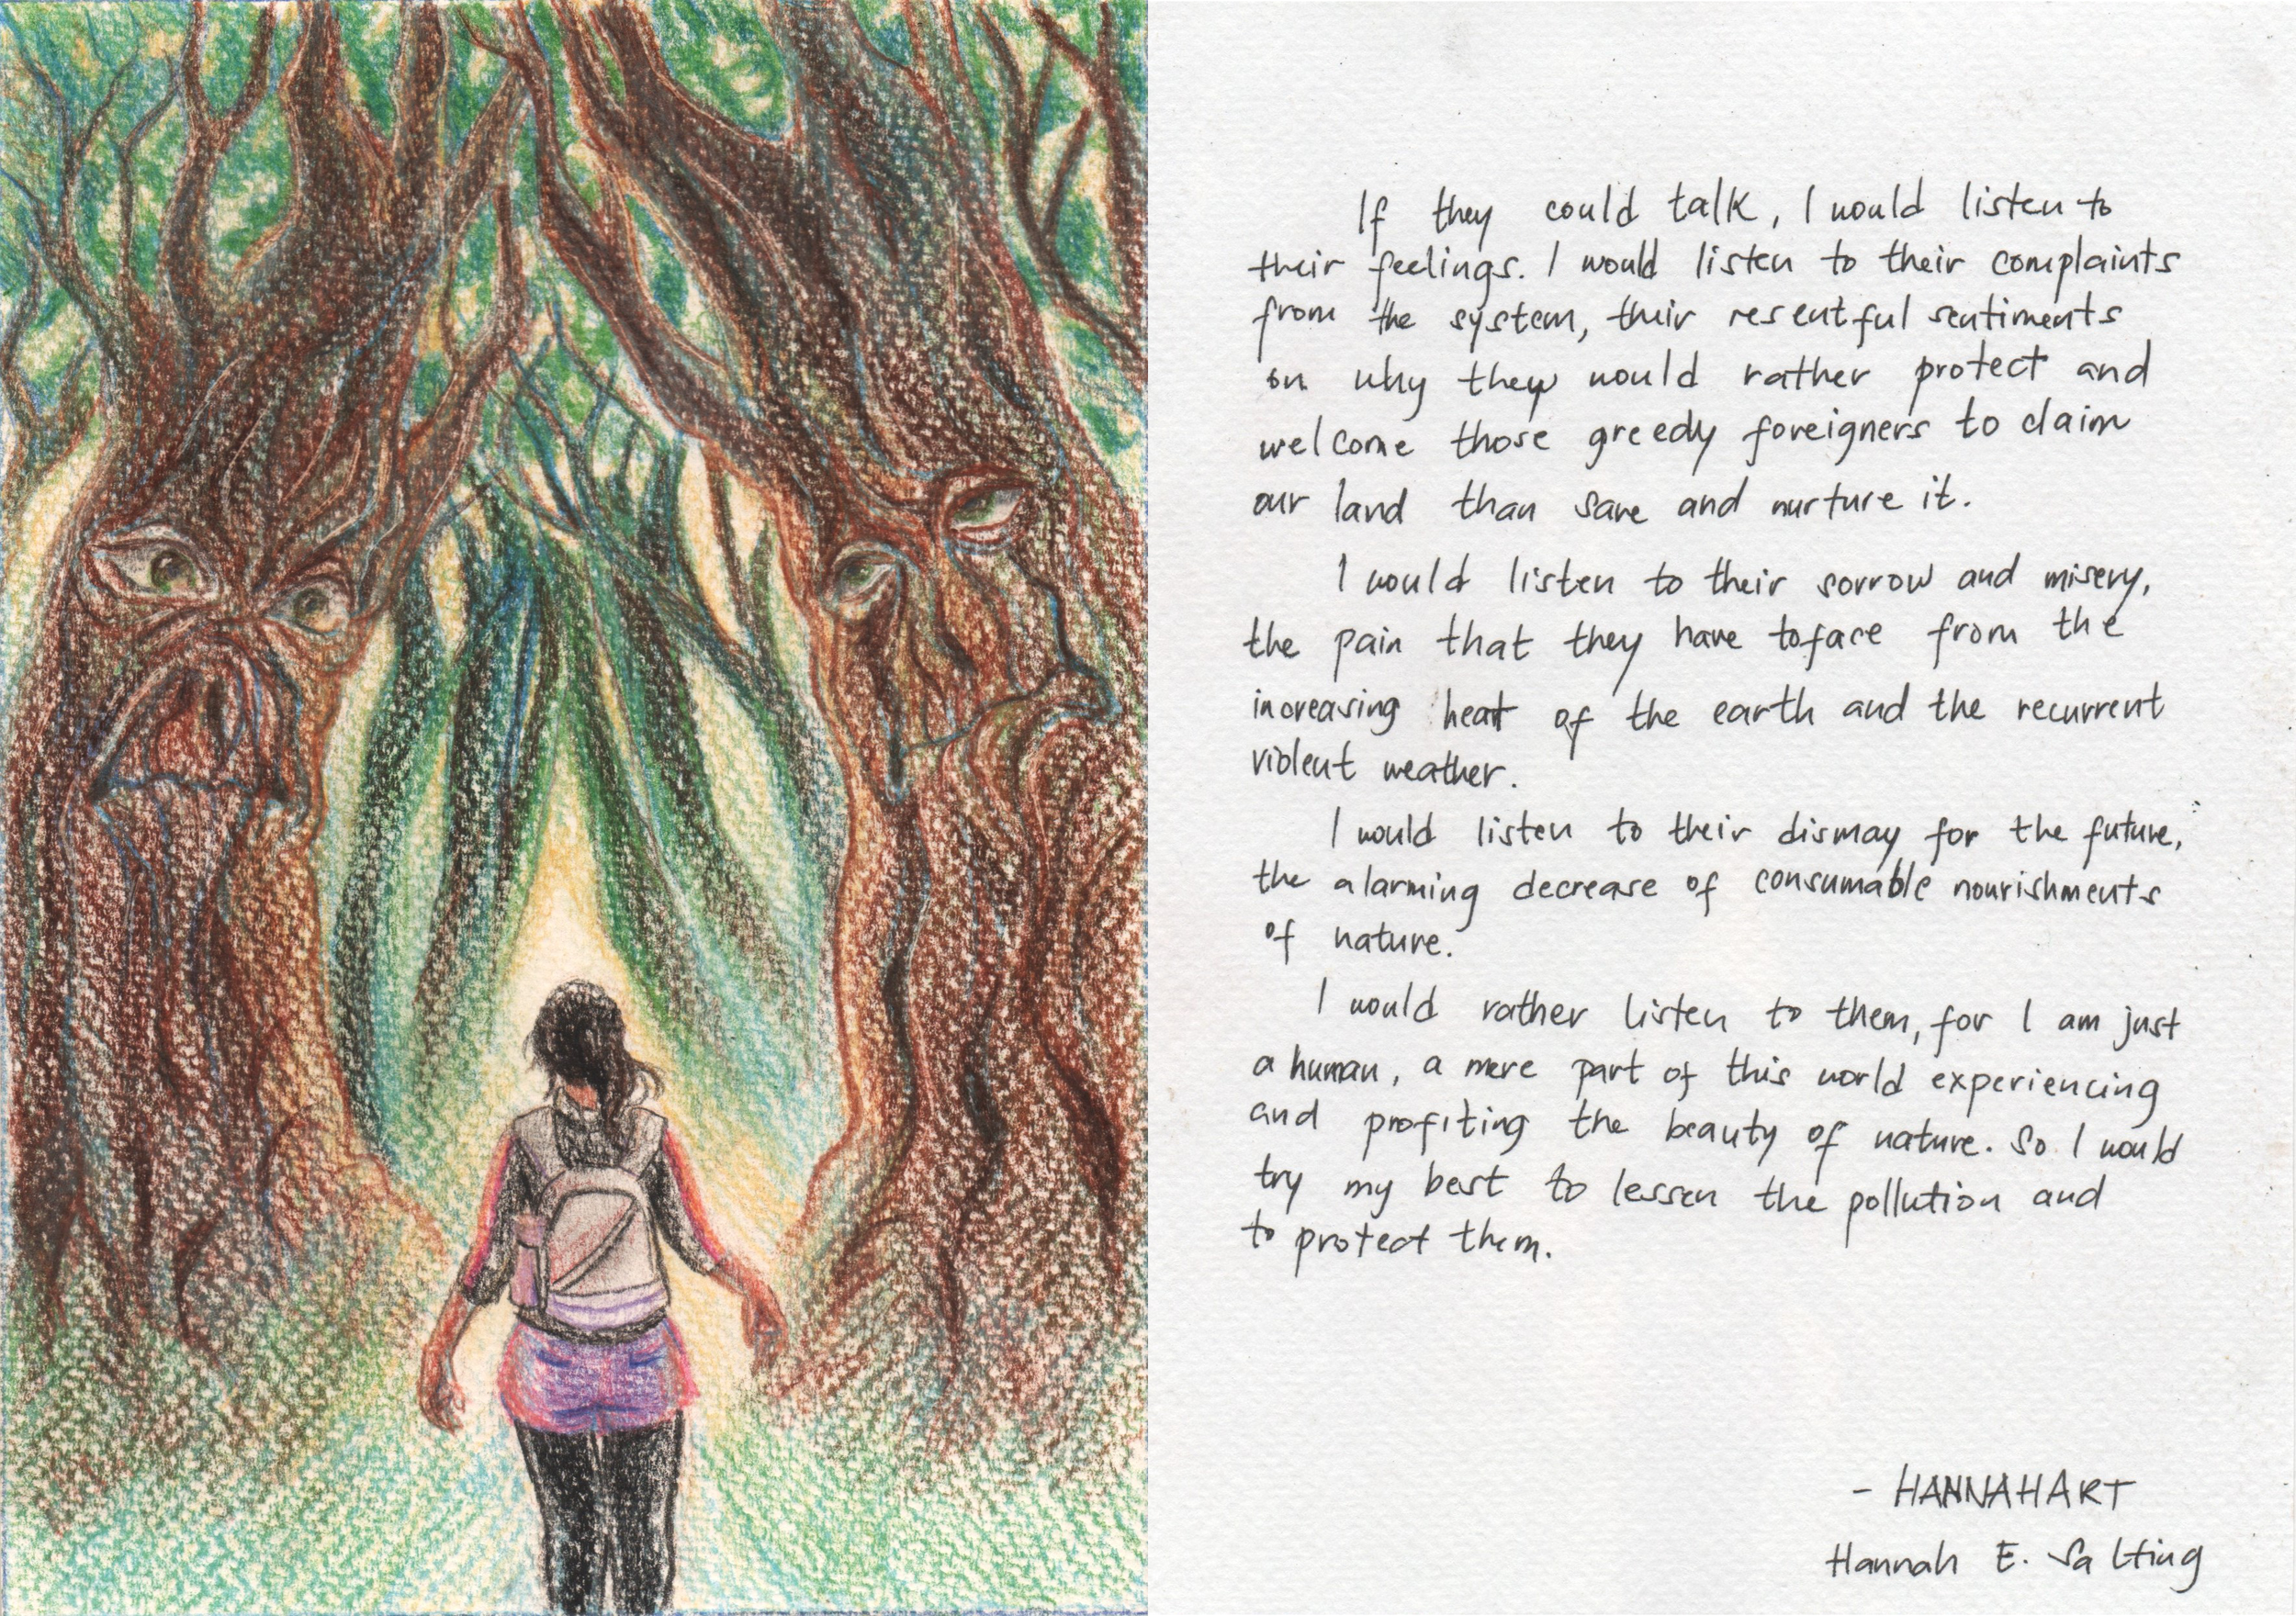 If they could talk, I would listen to
their feelings. I would listen to their complaints
from the system, their resentful sentiments
on why they would rather protect and
welcome those greedy foreigners to claim
our land than save and nurture it.
I would listen to their sorrow and misery,
the pain that they have to face from the
increasing heat of the earth and the recurrent
violent weather.
I would listen to their dismay for the future,
the alarming decrease of consumable nourishments
of nature.
I would rather listen to them, for I am just
a human, a mere part of this world experiencing
and profiting the beauty of nature. So I would
try my best to lessen the pollution and
to protect them.
- HANNAHART
Hannah E. Salting